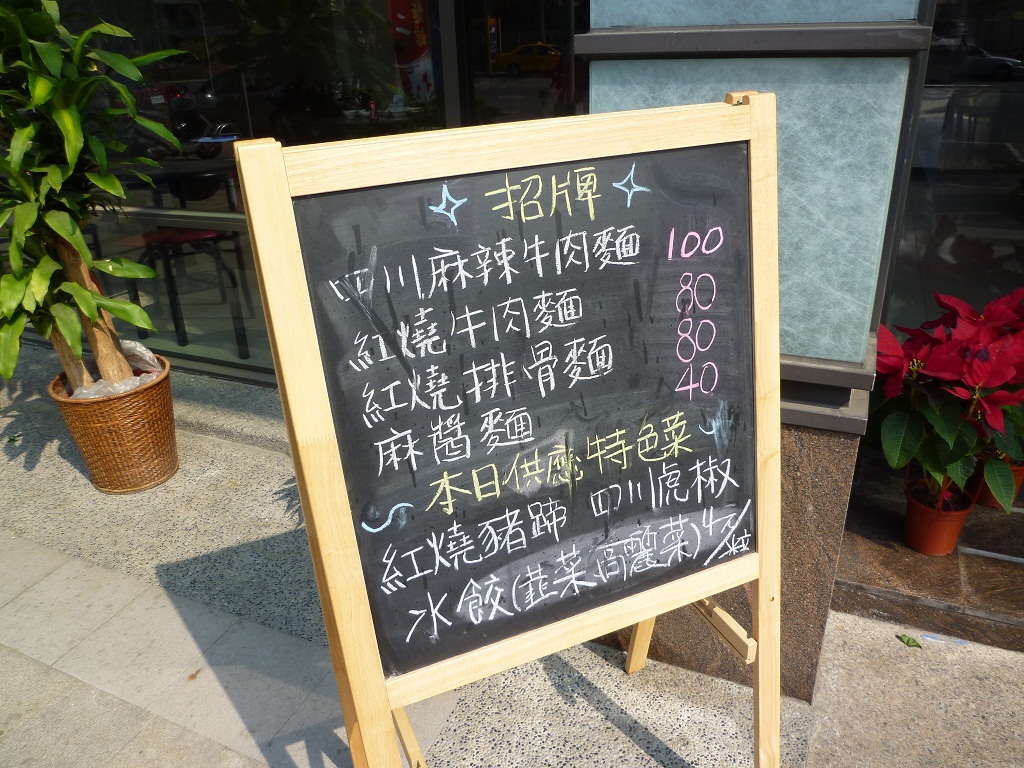 招牌
四川麻辣牛肉麵 100
紅燒牛肉麵 80
紅燒排骨麵 80
麻醬麵 40
本日供應特色菜
紅燒豬蹄 四川虎椒
水餃(韮菜高麗菜) 4元/粒